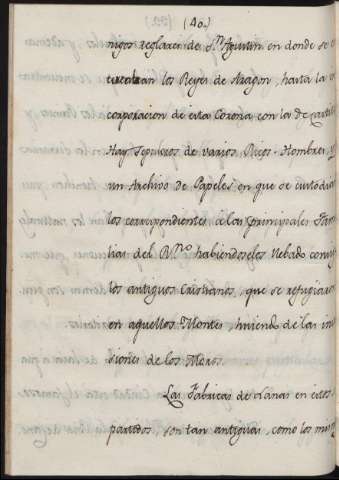 (40.)
nigos reglares de S.n Agustin en donde se en
tierran los Reyes de Aragon, hasta la in
corporacion de esta Corona con la de Castil
Hay Sepulcros de varios Ricos-Hombres, y
un Archivo de Papeles en que se custodian
los correspondientes a las principales Fami
lias del R.no habiendoseles llebado consigo
los antiguos Cristianos, que se refugiaron
en aquellos Montes, huiendo de las inva
siones de los Moros.
Las Fabricas de Lanas en estos
partidos, son tan antiguas, como los mism